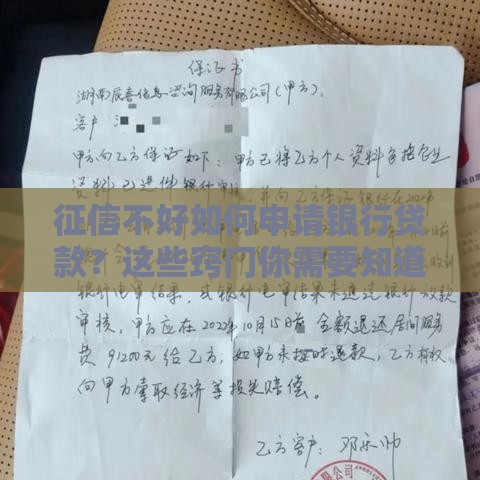 保证书
湖南辰喜信息咨询服务有限公司(甲方):
客户
甲方向乙方保证如下:甲方已将乙方个人资料
资料已进件银行审核,并向乙方保证银行在2022年
征信不好如何申请银行贷
款?这些窍门你需要知道
银行电审结果,或银行电审结果未通过银行放款
审核,甲方应在2022年10月15日前全额退还居间服务
费91200元给乙方,如甲方未按时退款,乙方有权
向甲方索取经济等损失赔偿。
乙方客户:邓乐帅
限公司